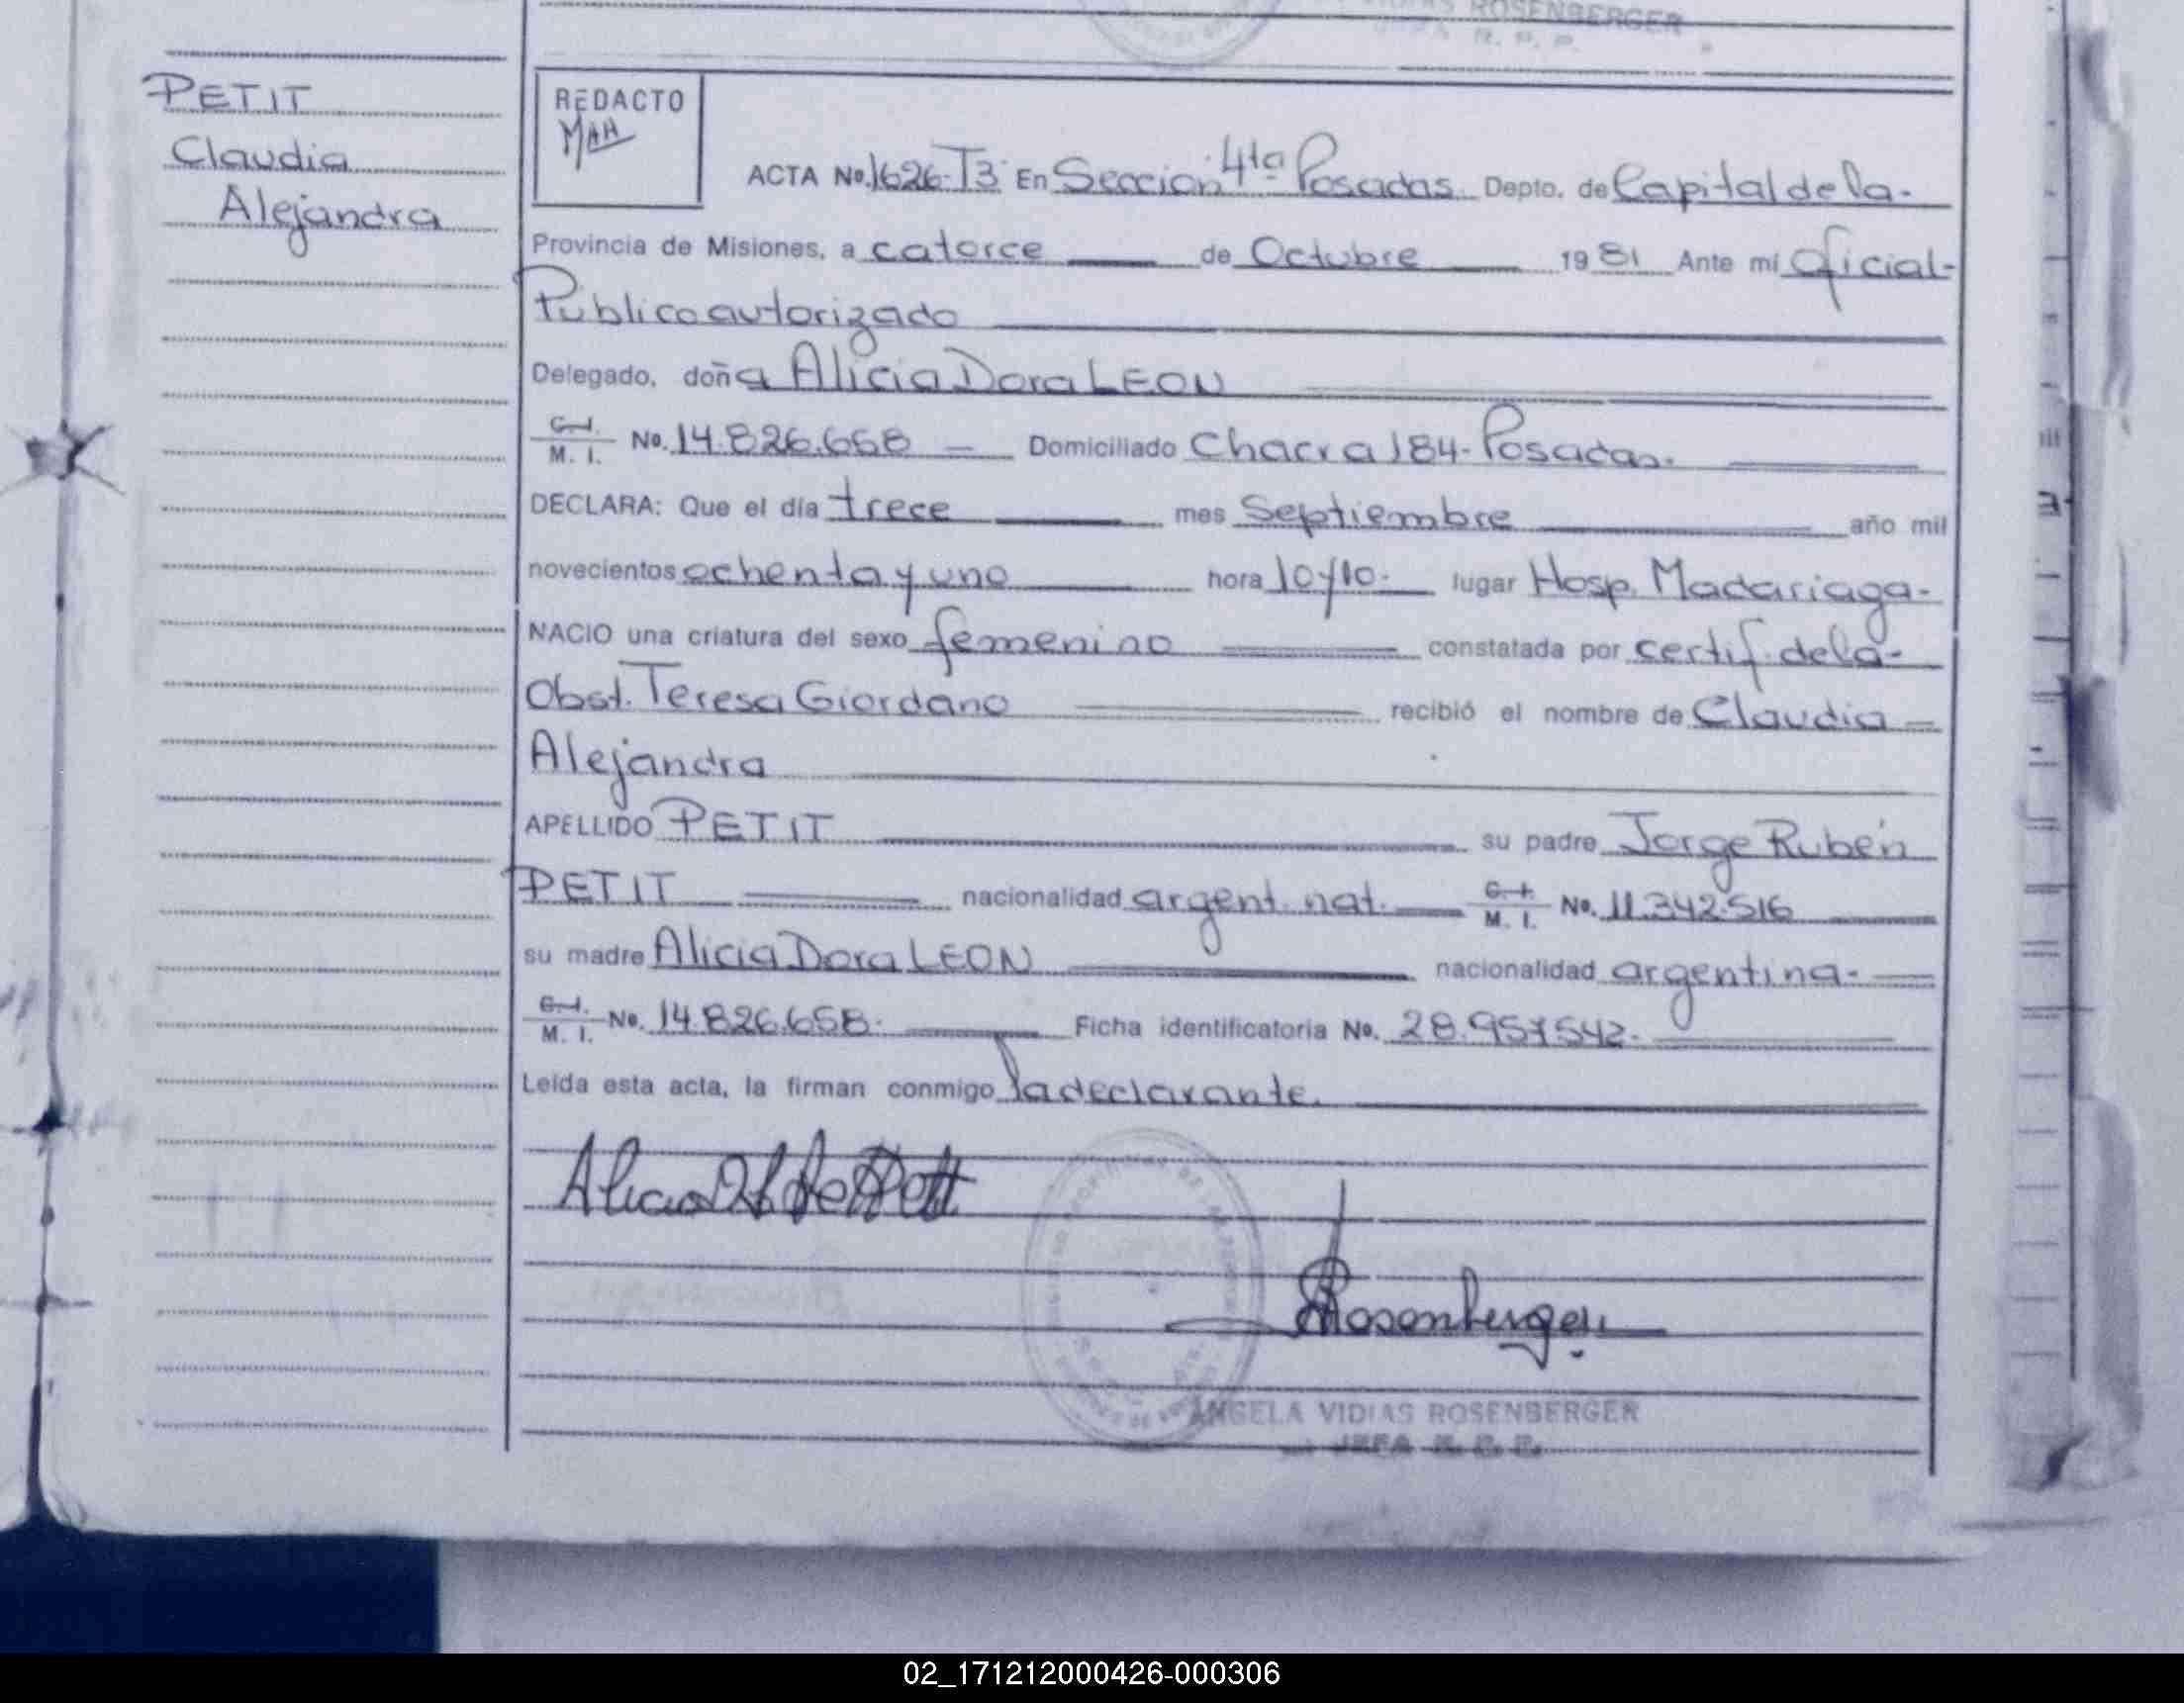 ROSENBERGER
R. P. P.
PETIT
Claudia
Alejandra
REDACTO
ACTA No. 1626-T3 En Sección 4ta Posadas Depto. de Capital de la-
Provincia de Misiones, a catorce de Octubre 1981 Ante mí Oficial-
Público autorizado
Delegado, doña Alicia Dora LEON
C. I.
M. I. No. 14.826.658 Domiciliado Chacra 184-Posadas.
DECLARA: Que el día trece mes Septiembre año mil
novecientos ochenta y uno hora 10y10. lugar Hosp. Madariaga-
NACIO una criatura del sexo femenino constatada por certif. de la-
Obst. Teresa Giordano recibió el nombre de Claudia
Alejandra
APELLIDO PETIT su padre Jorge Rubén
PETIT nacionalidad argent. nat. C. I.
M. I. No. 11.342.516
su madre Alicia Dora LEON nacionalidad argentina-
C. I.
M. I. No. 14.826.658. Ficha identificatoria No. 28.957.542.
Leída esta acta, la firman conmigo la declarante.
Rosenberger
ANGELA VIDIAS ROSENBERGER
JEFA
02_171212000426-000306